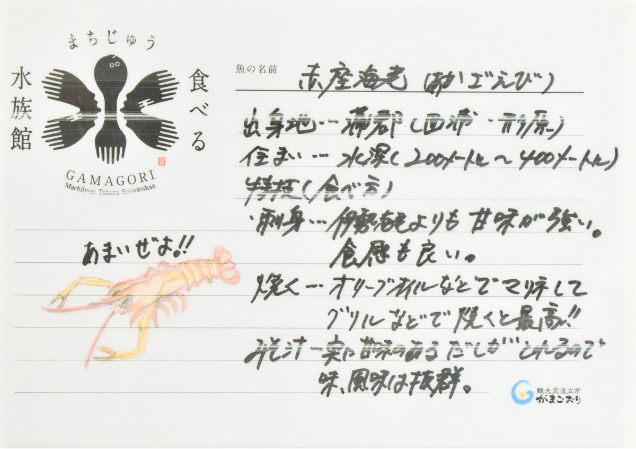 まちじゅう
食べる
水族館
GAMAGORI
Machijuu Taberu Suizokukan
魚の名前 赤座海老(あかざえび)
出身地…蒲郡(西浦・形原)
住まい…水深(200メートル〜400メートル)
特技(食べ方)
・刺身…伊勢海老よりも甘味が強い。
食感も良い。
焼く…オリーブオイルなどでマリネして
グリルなどで焼くと最高!!
みそ汁ー実に甘味のあるだしがとれるので
味、風味は抜群。
あまいぜよ!!
観光交流立市
がまごおり